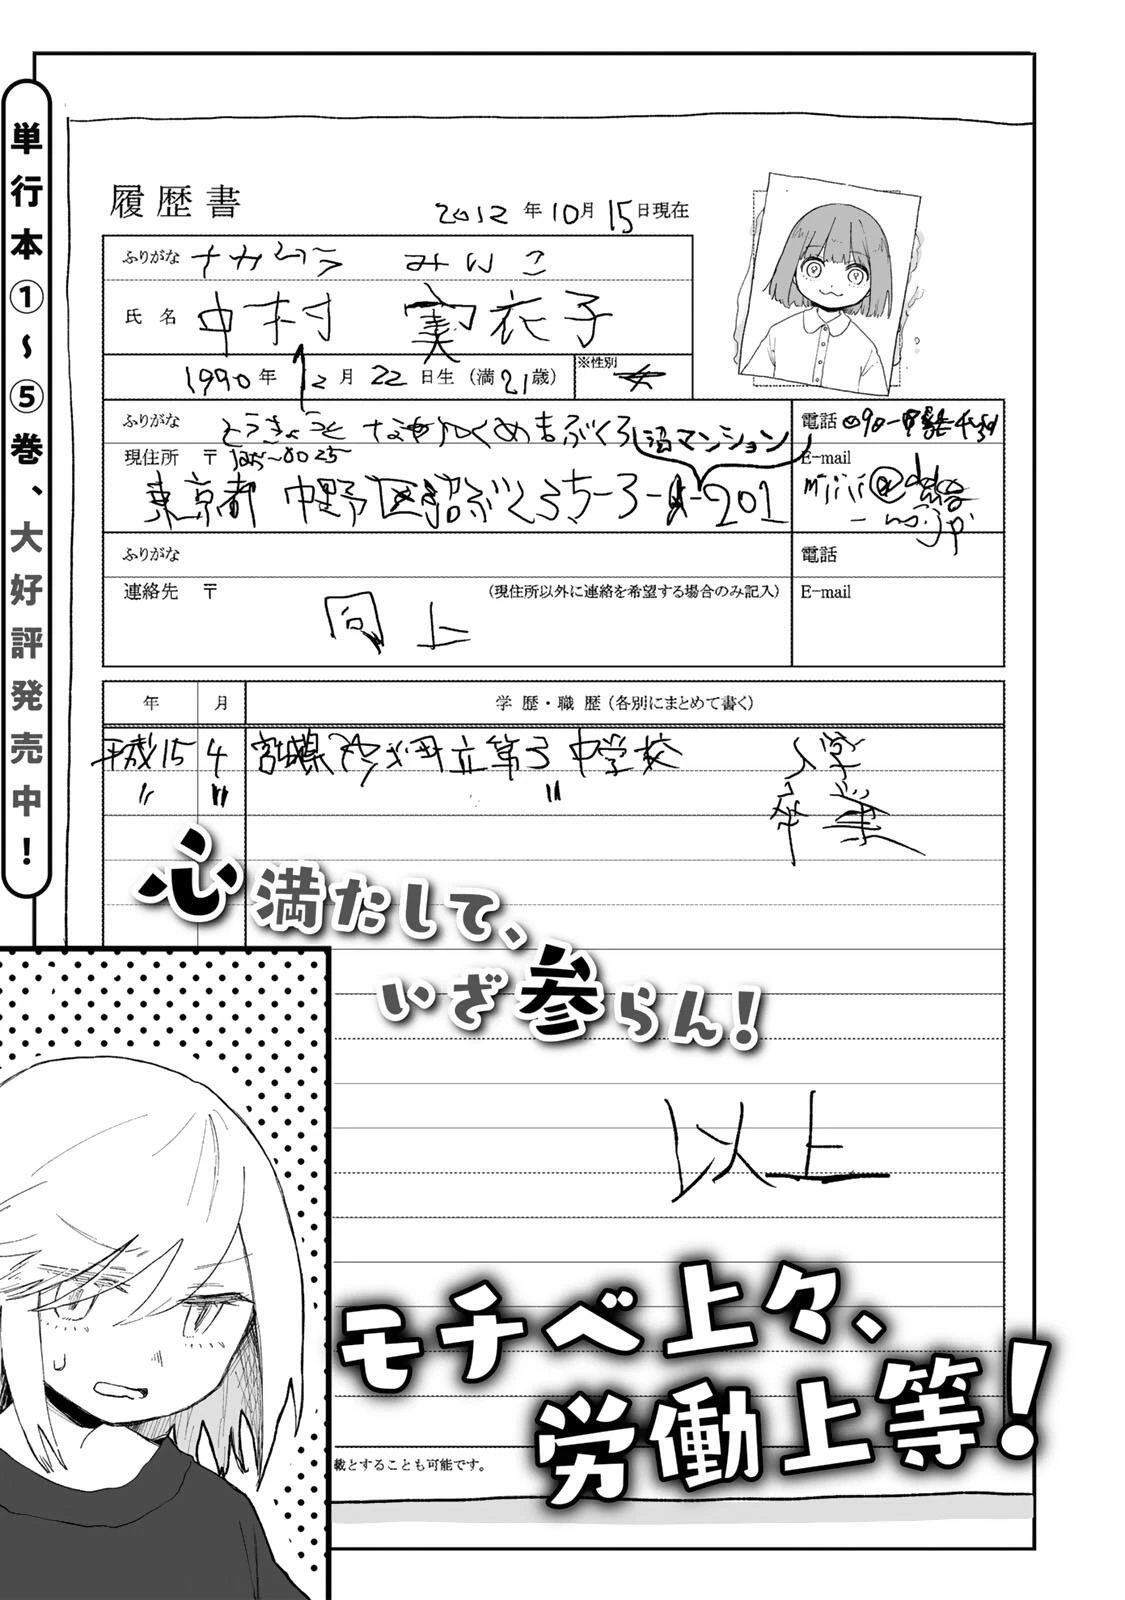 単行本①～⑤巻、大好評発売中！
履歴書
2012年10月15日現在
ふりがな ナカムラ みいこ
氏名 中村 実衣子
1990年12月22日生（満21歳）
※性別 女
ふりがな とうきょうと なかのくぬまぶくろ
沼マンション
電話 090-
現住所 〒
E-mail
東京都 中野区沼ぶくろ5-3-201
ふりがな
電話
連絡先 〒
（現住所以外に連絡を希望する場合のみ記入）
E-mail
同上
年 月 学歴・職歴（各別にまとめて書く）
平成15 4 宮城県 町立第3中学校 入学
〃 〃 〃 卒業
心満たして、
いざ参らん！
以上
モチベ上々、
労働上等！
載とすることも可能です。